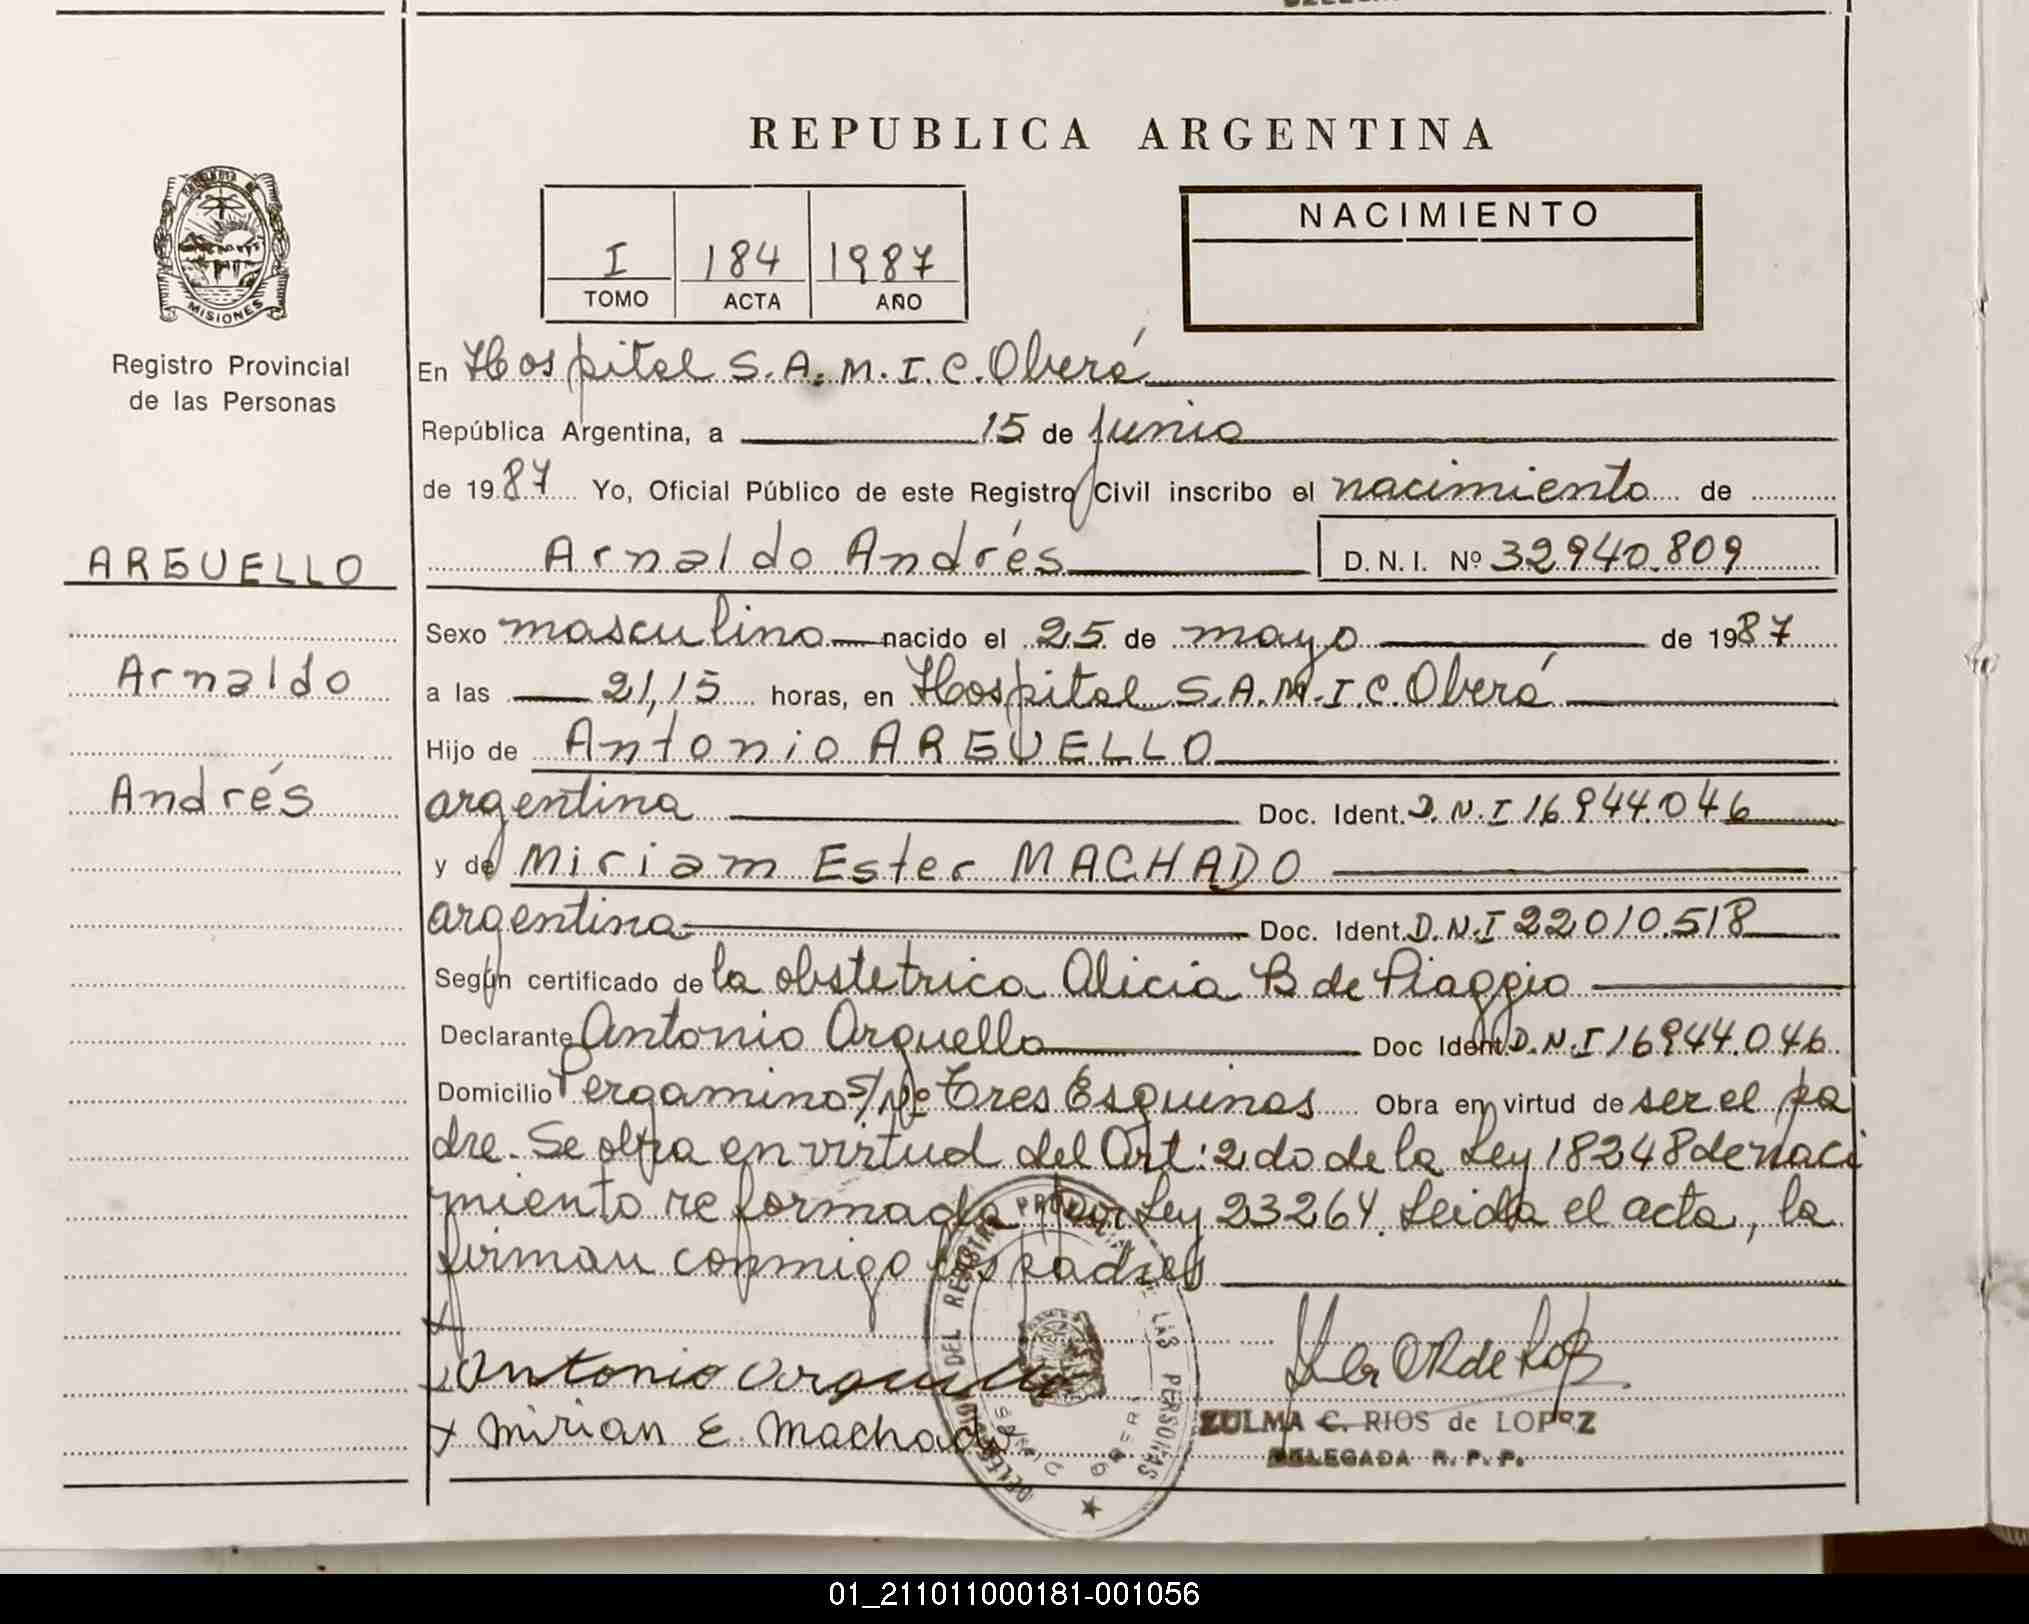 REPUBLICA ARGENTINA
MISIONES
Registro Provincial
de las Personas
I 184 1987
TOMO ACTA AÑO
NACIMIENTO
En Hospital S.A.M.I.C. Oberá
República Argentina, a 15 de junio
de 1987 Yo, Oficial Público de este Registro Civil inscribo el nacimiento de
Arnaldo Andrés D.N.I. Nº 32940.809
ARGUELLO
Arnaldo
Andrés
Sexo masculino nacido el 25 de mayo de 1987
a las 21,15 horas, en Hospital S.A.M.I.C. Oberá
Hijo de Antonio ARGUELLO
argentina Doc. Ident. D.N.I 16944.046
y de Miriam Ester MACHADO
argentina Doc. Ident. D.N.I 22010.518
Según certificado de la obstetrica Alicia B de Piaggio
Declarante Antonio Arguello Doc Ident. D.N.I 16944.046
Domicilio Pergamino S/Nº Tres Esquinas Obra en virtud de ser el pa
dre. Se obra en virtud del Art: 2do de la Ley 18248 de naci
miento reformada por Ley 23264. Leida el acta, la
firman conmigo los padres
Antonio Arguello
Mirian E. Machado
ZULMA C. RIOS de LOPEZ
DELEGADA R. P. P.
DEL REGISTRO PROVINCIAL DE LAS PERSONAS
01_211011000181-001056